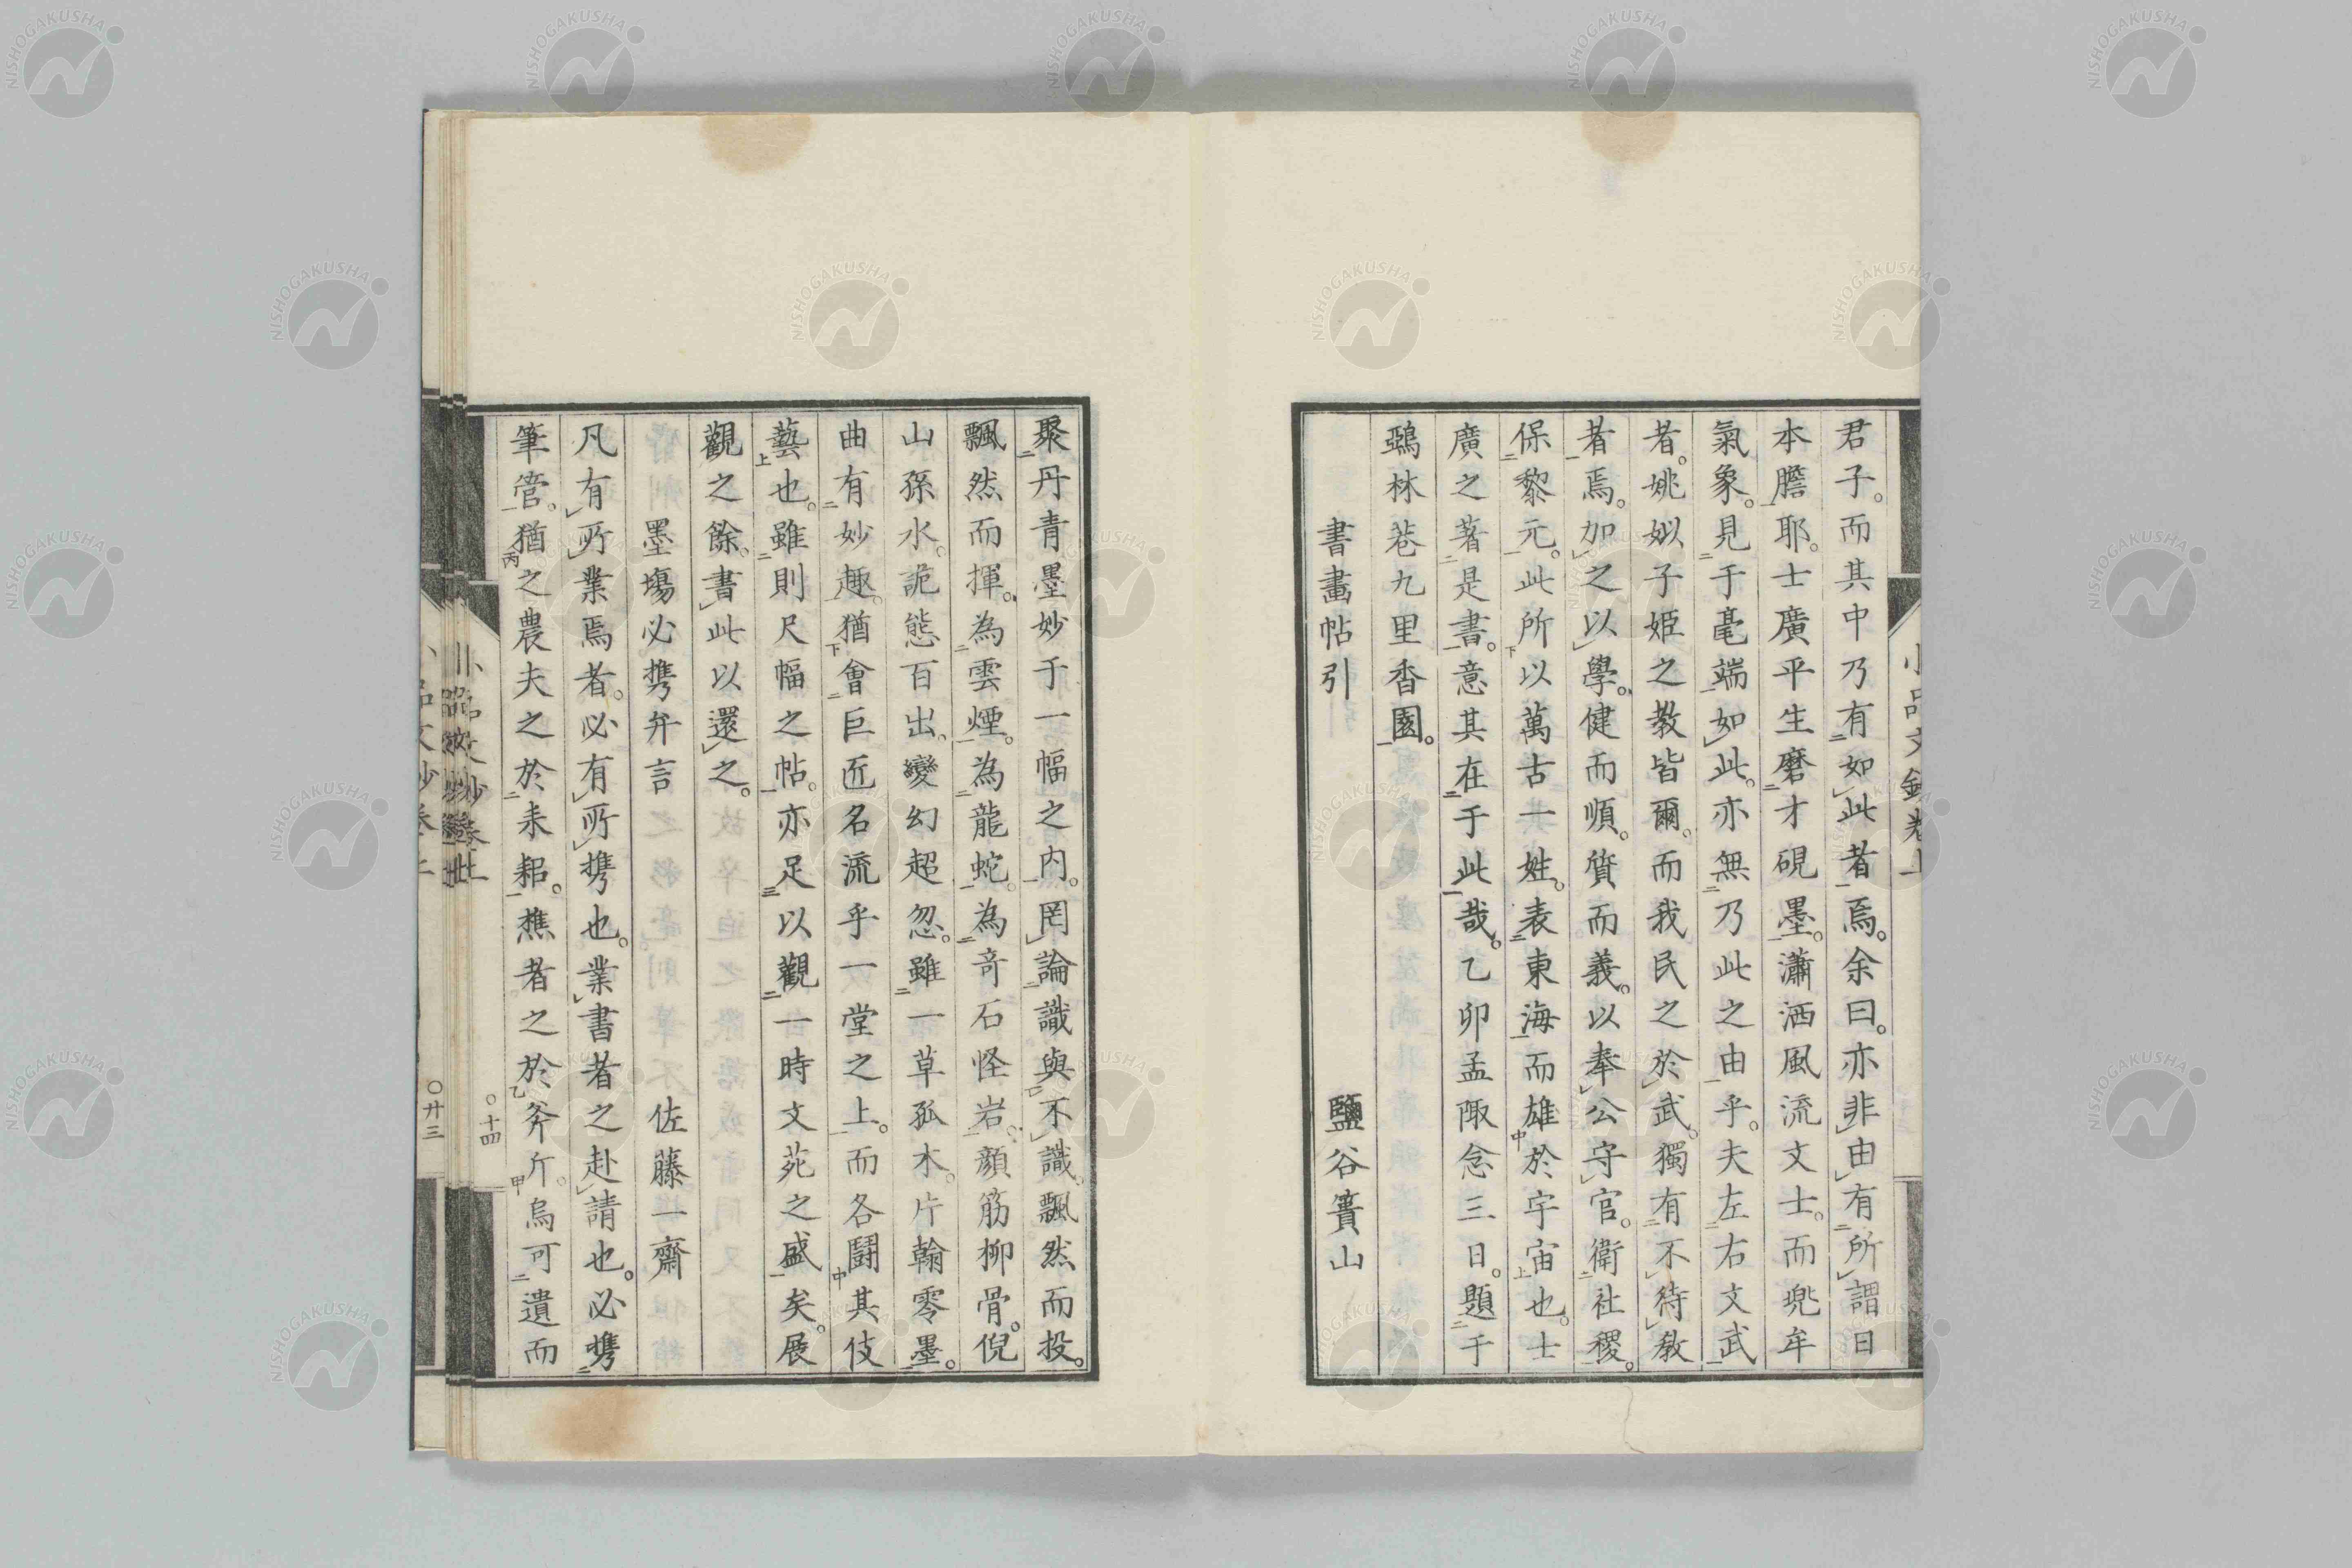 君子。而其中乃有如此者焉。余曰。亦非由有所謂日
本膽耶。士廣平生磨才硯墨。瀟洒風流文士。而兜牟
氣象。見于毫端如此。亦無乃此之由乎。夫左右文武
者。姚姒子姬之教皆爾。而我民之於武。獨有不待教
者焉。加之以學。健而順。質而義。以奉公守官。衛社稷。
保黎元。此所以萬古一姓。表東海而雄於宇宙也。士
廣之著是書。意其在于此哉。乙卯孟陬念三日。題于
鵶林巷九里香園。
書畫帖引 鹽谷簣山
聚丹青墨妙于一幅之内。罔論識與不識。飄然而投。
飄然而揮。為雲煙。為龍蛇。為奇石怪岩。顔筋柳骨。倪
山孫水。詭態百出、變幻超忽。雖一草孤木。片翰零墨。
曲有妙趣。猶會巨匠名流乎一堂之上。而各鬪其伎
藝也。雖則尺幅之帖。亦足以觀一時文苑之盛矣。展
觀之餘。書此以還之。
墨塲必携弁言 佐藤一齋
凡有所業焉者。必有所携也。業書者之赴請也。必携
筆管。猶之農夫之於耒耜。樵者之於斧斤。烏可遺而
小品文鈔卷上
〇十四
〇廿三